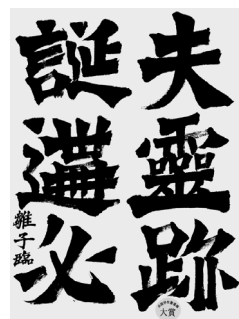 夫靈跡
誕遘必
子臨
大賞